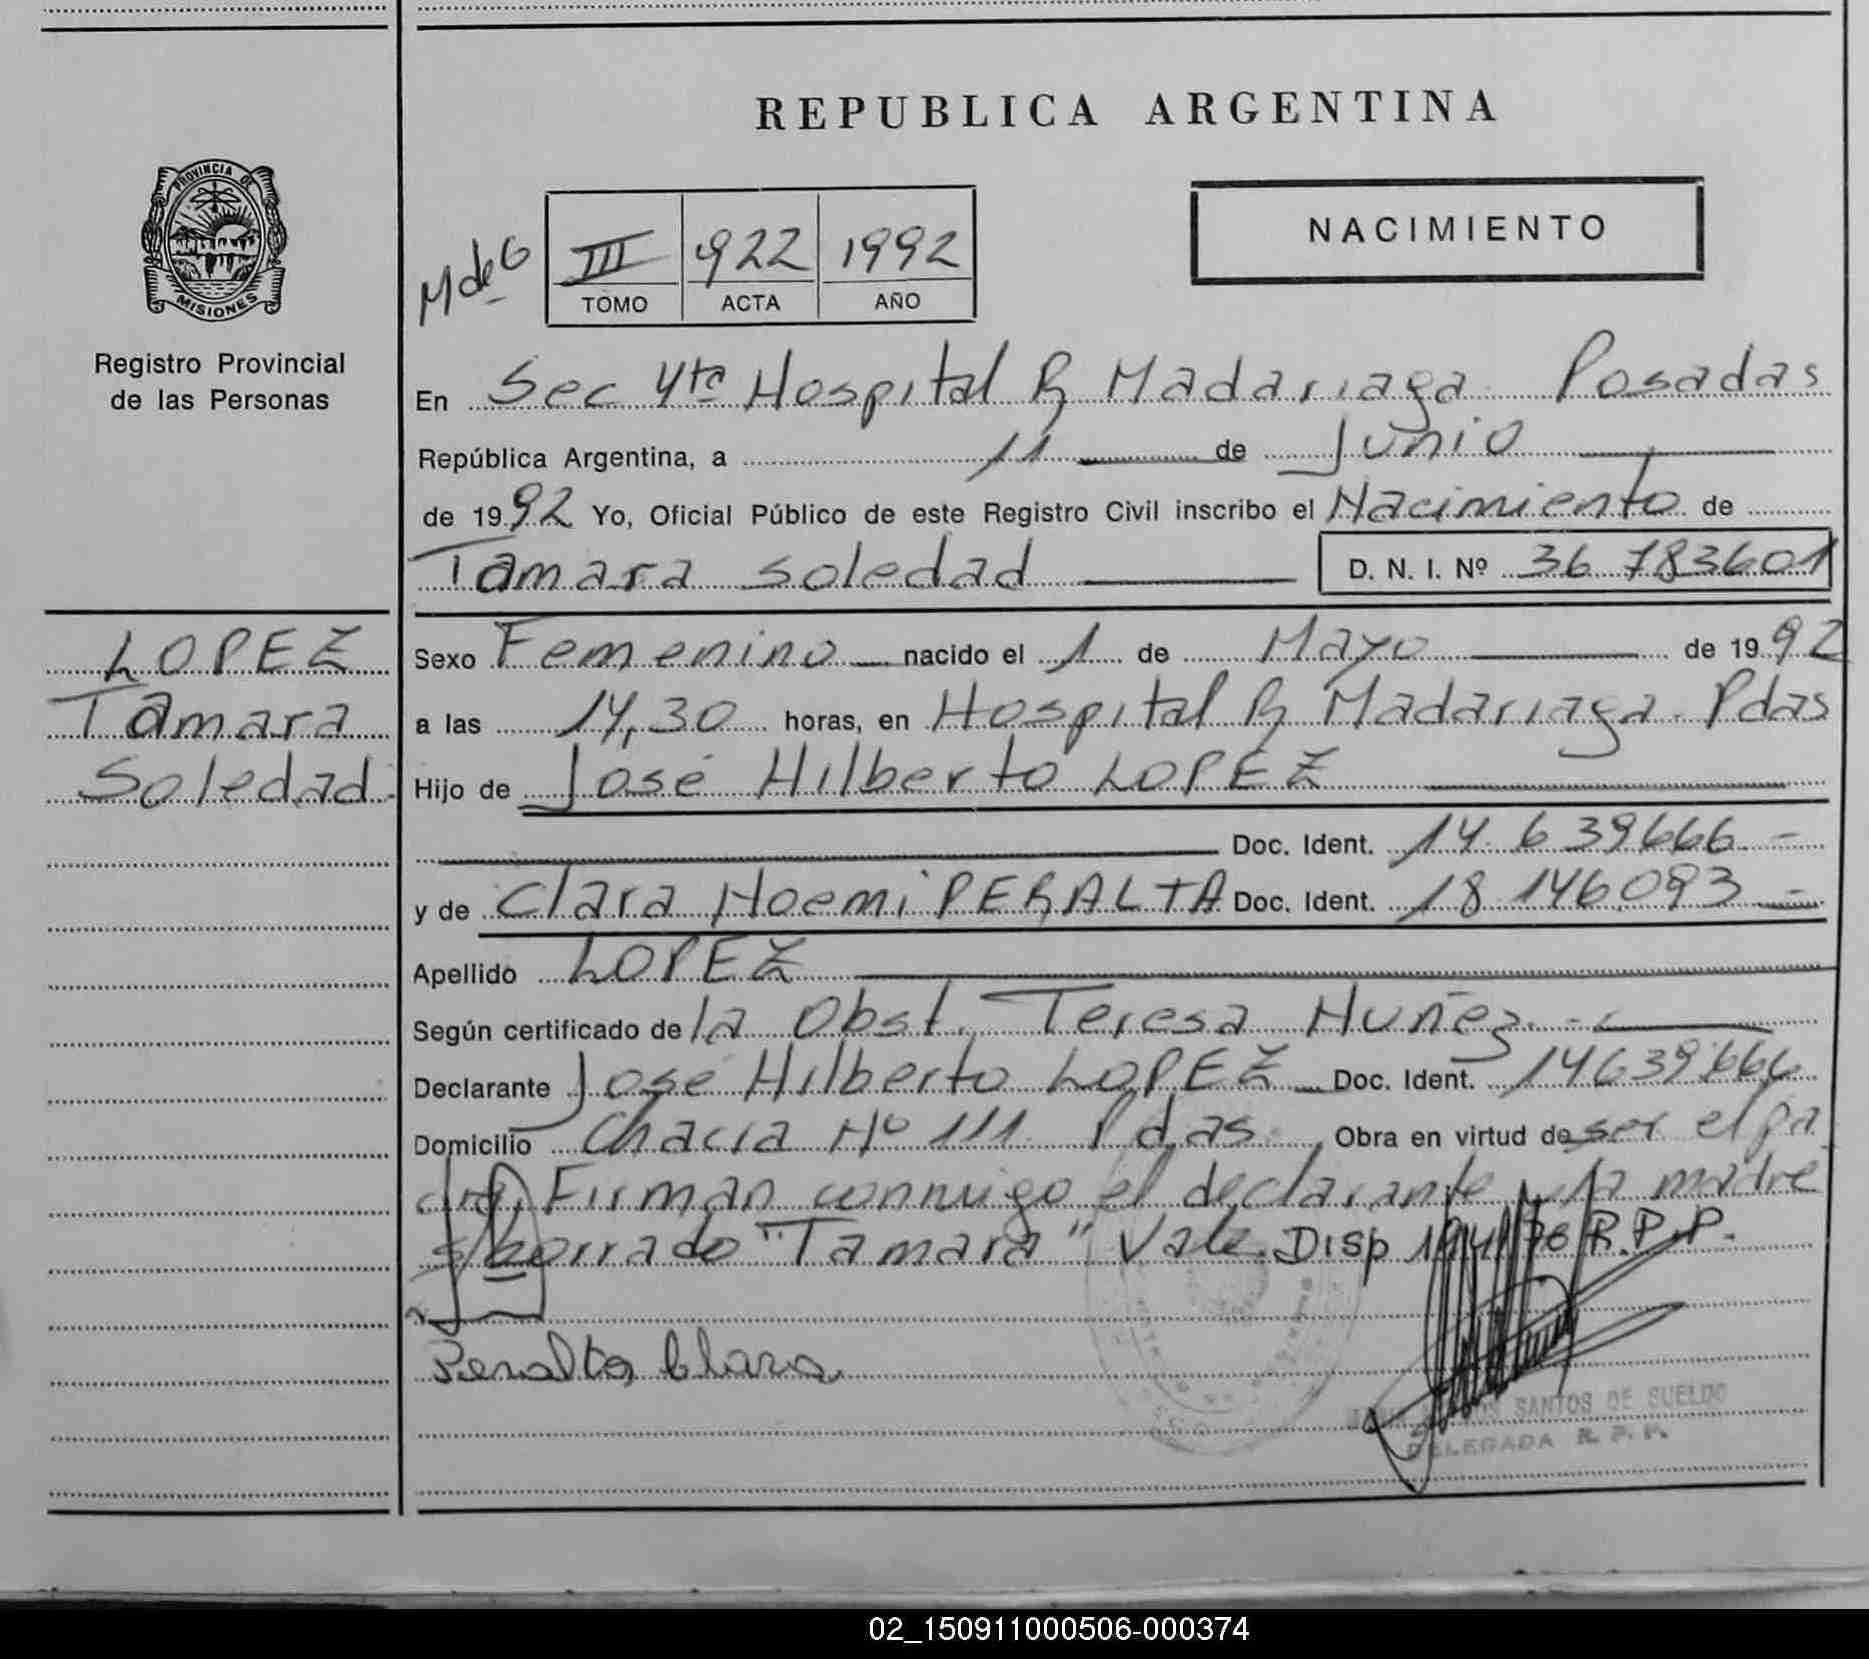 REPUBLICA ARGENTINA
PROVINCIA DE
MISIONES
Registro Provincial
de las Personas
M de G
III 922 1992
TOMO ACTA AÑO
NACIMIENTO
En Sec 4ta Hospital R Madariaga Posadas
República Argentina, a 11 de Junio
de 1992 Yo, Oficial Público de este Registro Civil inscribo el Nacimiento de
Tamara Soledad D. N. I. Nº 36 783601
LOPEZ
Tamara
Soledad
Sexo Femenino nacido el 1 de Mayo de 1992
a las 14,30 horas, en Hospital R Madariaga Pdas
Hijo de José Hilberto LOPEZ
Doc. Ident. 14.639666
y de Clara Noemi PERALTA Doc. Ident. 18 146.093
Apellido LOPEZ
Según certificado de la Obst. Teresa Nuñez
Declarante José Hilberto LOPEZ Doc. Ident. 14639666
Domicilio Chacra Nº 111 Pdas. Obra en virtud de ser el pa
dre. Firman conmigo el declarante y la madre
s/borrado "Tamara" Vale. Disp R.P.P.
Peralta Clara
SANTOS DE SUELDO
DELEGADA R. P. P.
02_150911000506-000374